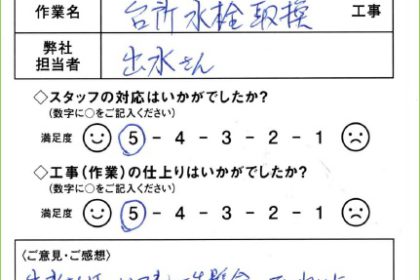 作業名 台所水栓取換 工事
弊社
担当者 出水さん
◇スタッフの対応はいかがでしたか?
(数字に○をご記入ください)
満足度 5 - 4 - 3 - 2 - 1
◇工事(作業)の仕上りはいかがですか?
(数字に○をご記入ください)
満足度 5 - 4 - 3 - 2 - 1
〈ご意見・ご感想〉
出水さんは いつも 一生懸命